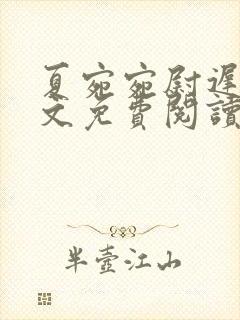 夏宛宛尉遲
文免費閱讀
半壺江山